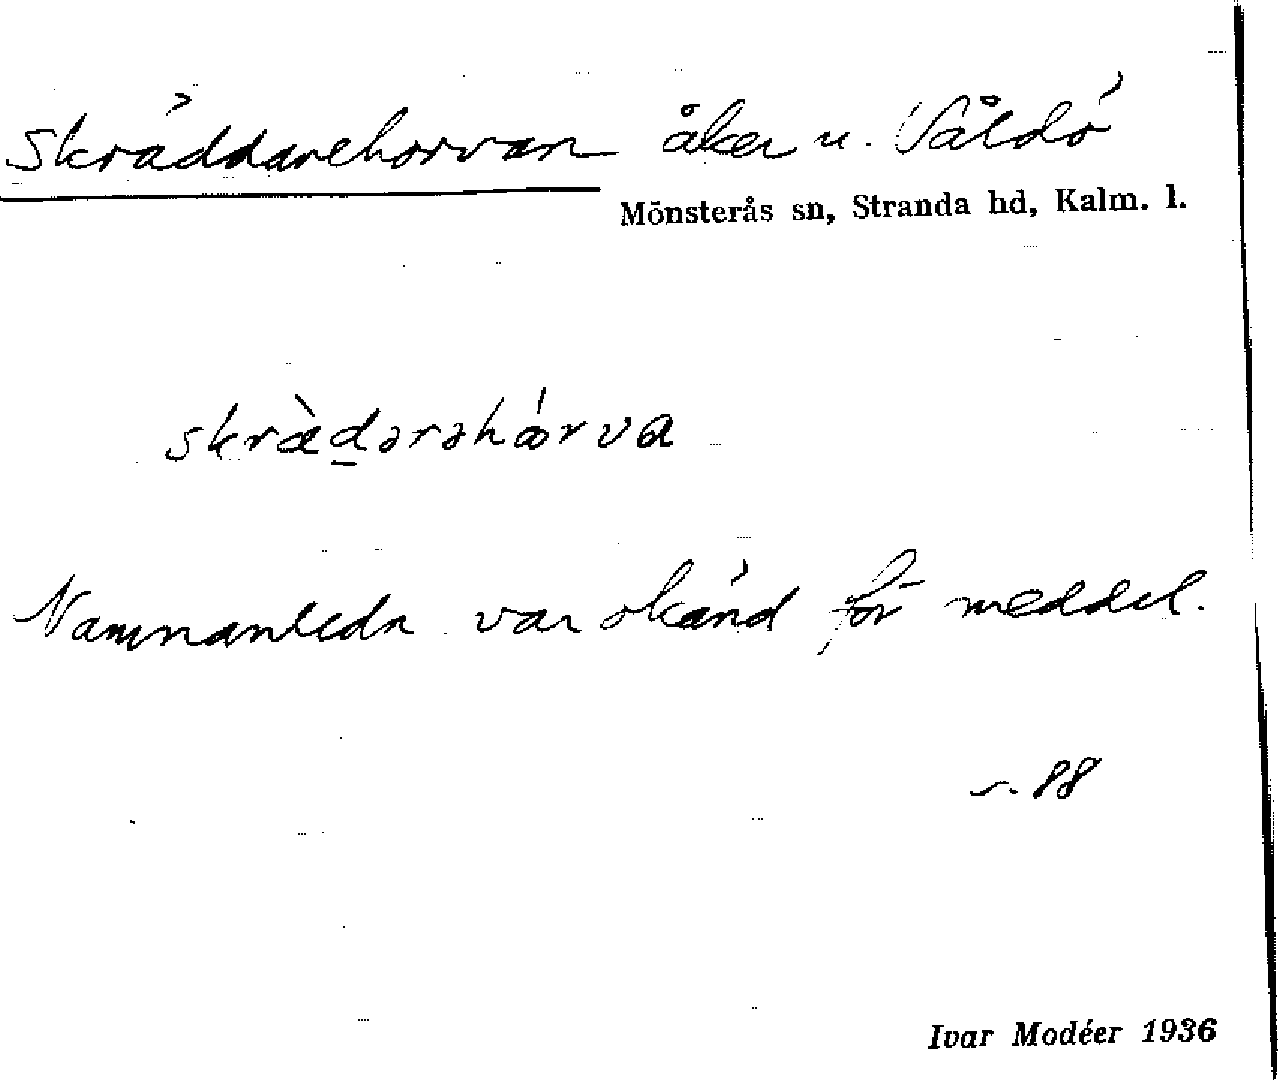 Skräddarehorvan åker u. Våldö
Mönsterås sn, Stranda hd, Kalm. l.
skrædərəhórva
Namnanledn var okänd för meddel.
s. 88
Ivar Modéer 1936